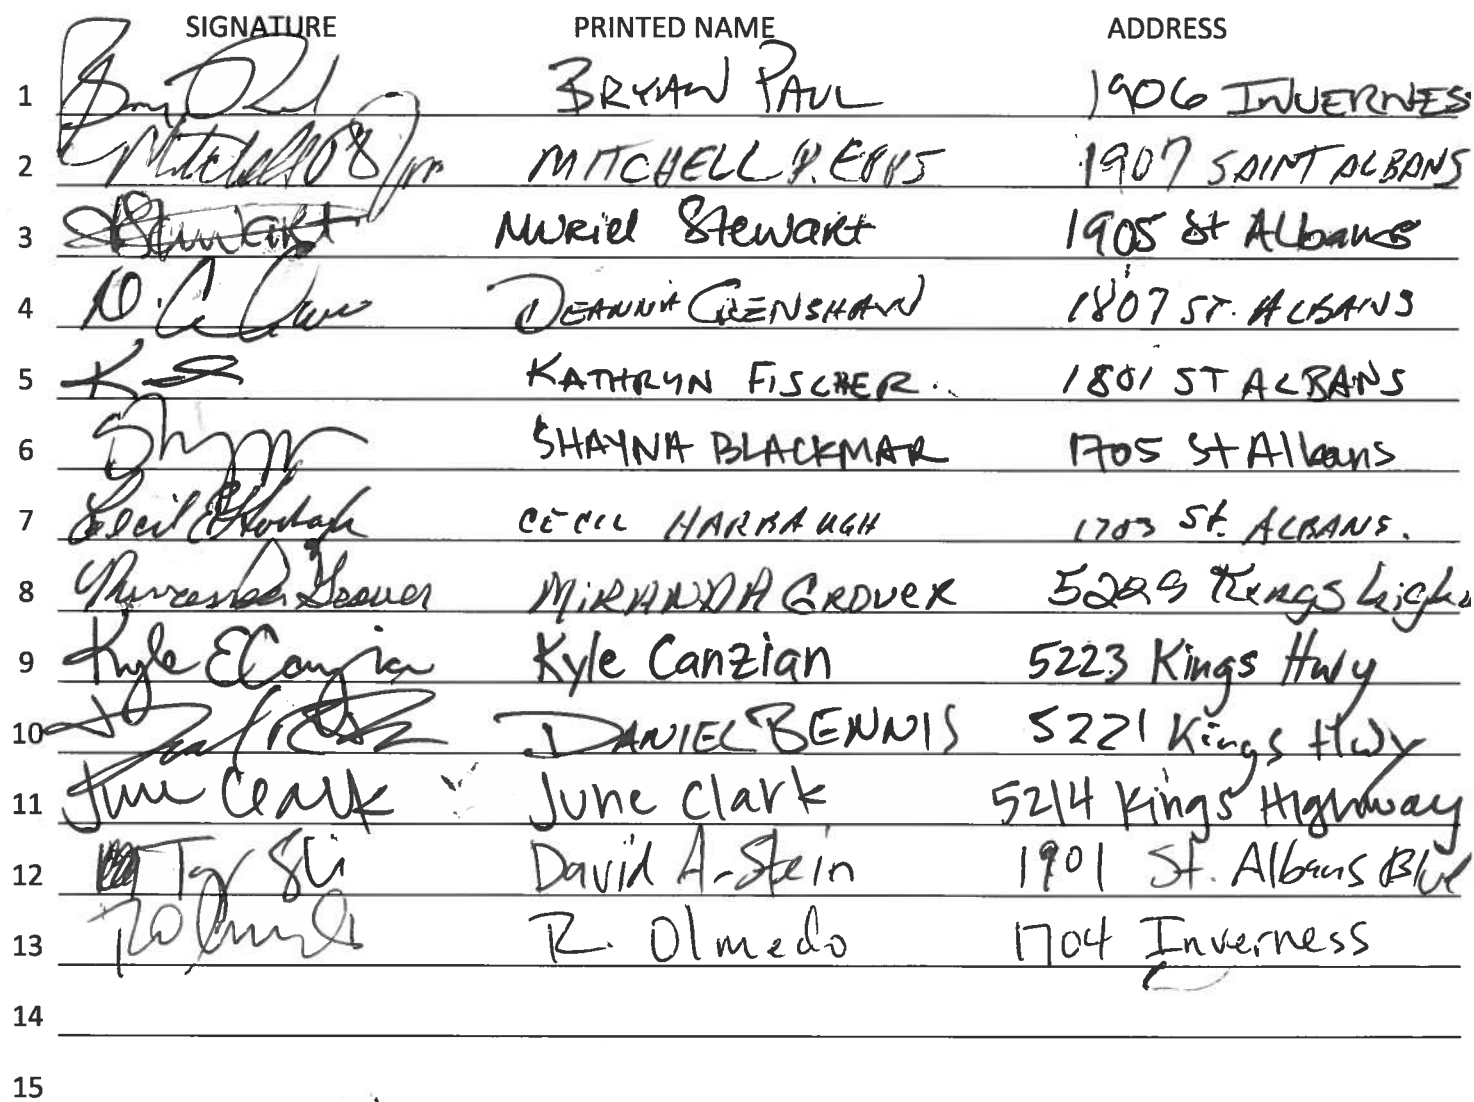 SIGNATURE PRINTED NAME ADDRESS
1 BRYAN PAUL 1906 INVERNESS
2 MITCHELL P. EPPS 1907 SAINT ALBANS
3 Stewart Muriel Stewart 1905 St Albans
4 DEANNA CRENSHAW 1807 ST. ALBANS
5 KATHRYN FISCHER 1801 ST ALBANS
6 SHAYNA BLACKMAR 1705 St Albans
7 Cecil CECIL HARBAUGH 1703 St. ALBANS.
8 Miranda Grover MIRANDA GROVER Kings
9 Kyle E Canzian Kyle Canzian 5223 Kings Hwy
10 DANIEL BENNIS 5221 Kings Hwy
11 June Clark June Clark 5214 Kings Highway
12 David A. Stein 1901 St. Albans Blvd
13 R. Olmedo 1704 Inverness
14
15